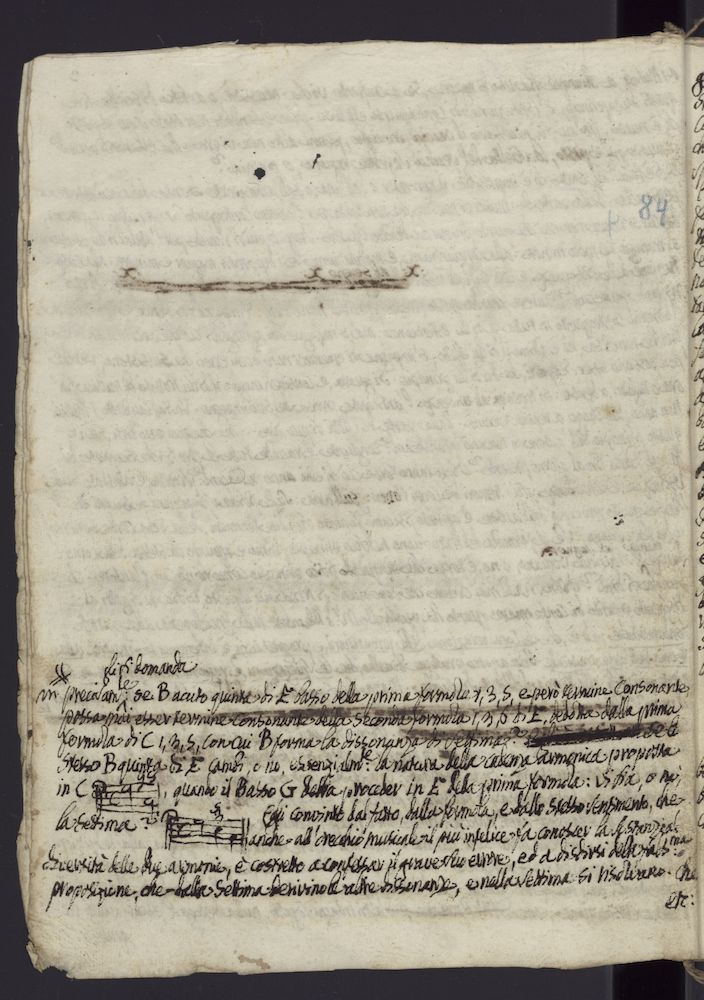 p. 84
x x x
se gli domanda
precisam.te se B acuto quinta di E basso della prima formola 1, 3, 5, e però termine Consonante,
possa mai esser termine consonante della seconda formola 1, 3, 5 di E, dedotta dalla prima
formola di C 1, 3, 5, con cui B forma la dissonanza di settima? se lo
stesso B quinta di E cambi, o nò essenzialm.te la natura della catena armonica proposta
in C, quando il Basso G debba proceder in E della prima formola: vi sia, o nò,
la Settima? Egli convinto dal fatto, dalla formola, e dallo stesso sentimento, che
anche all'orecchio musicale il più infelice fa conoscer la sostanzial
diversità delle due armonie, è costretto a confessar il grave suo errore, ed a disdirsi della falsis.ma
proposizione, che dalla Settima derivino le altre dissonanze, e nella Settima si risolvano. Che
etc: